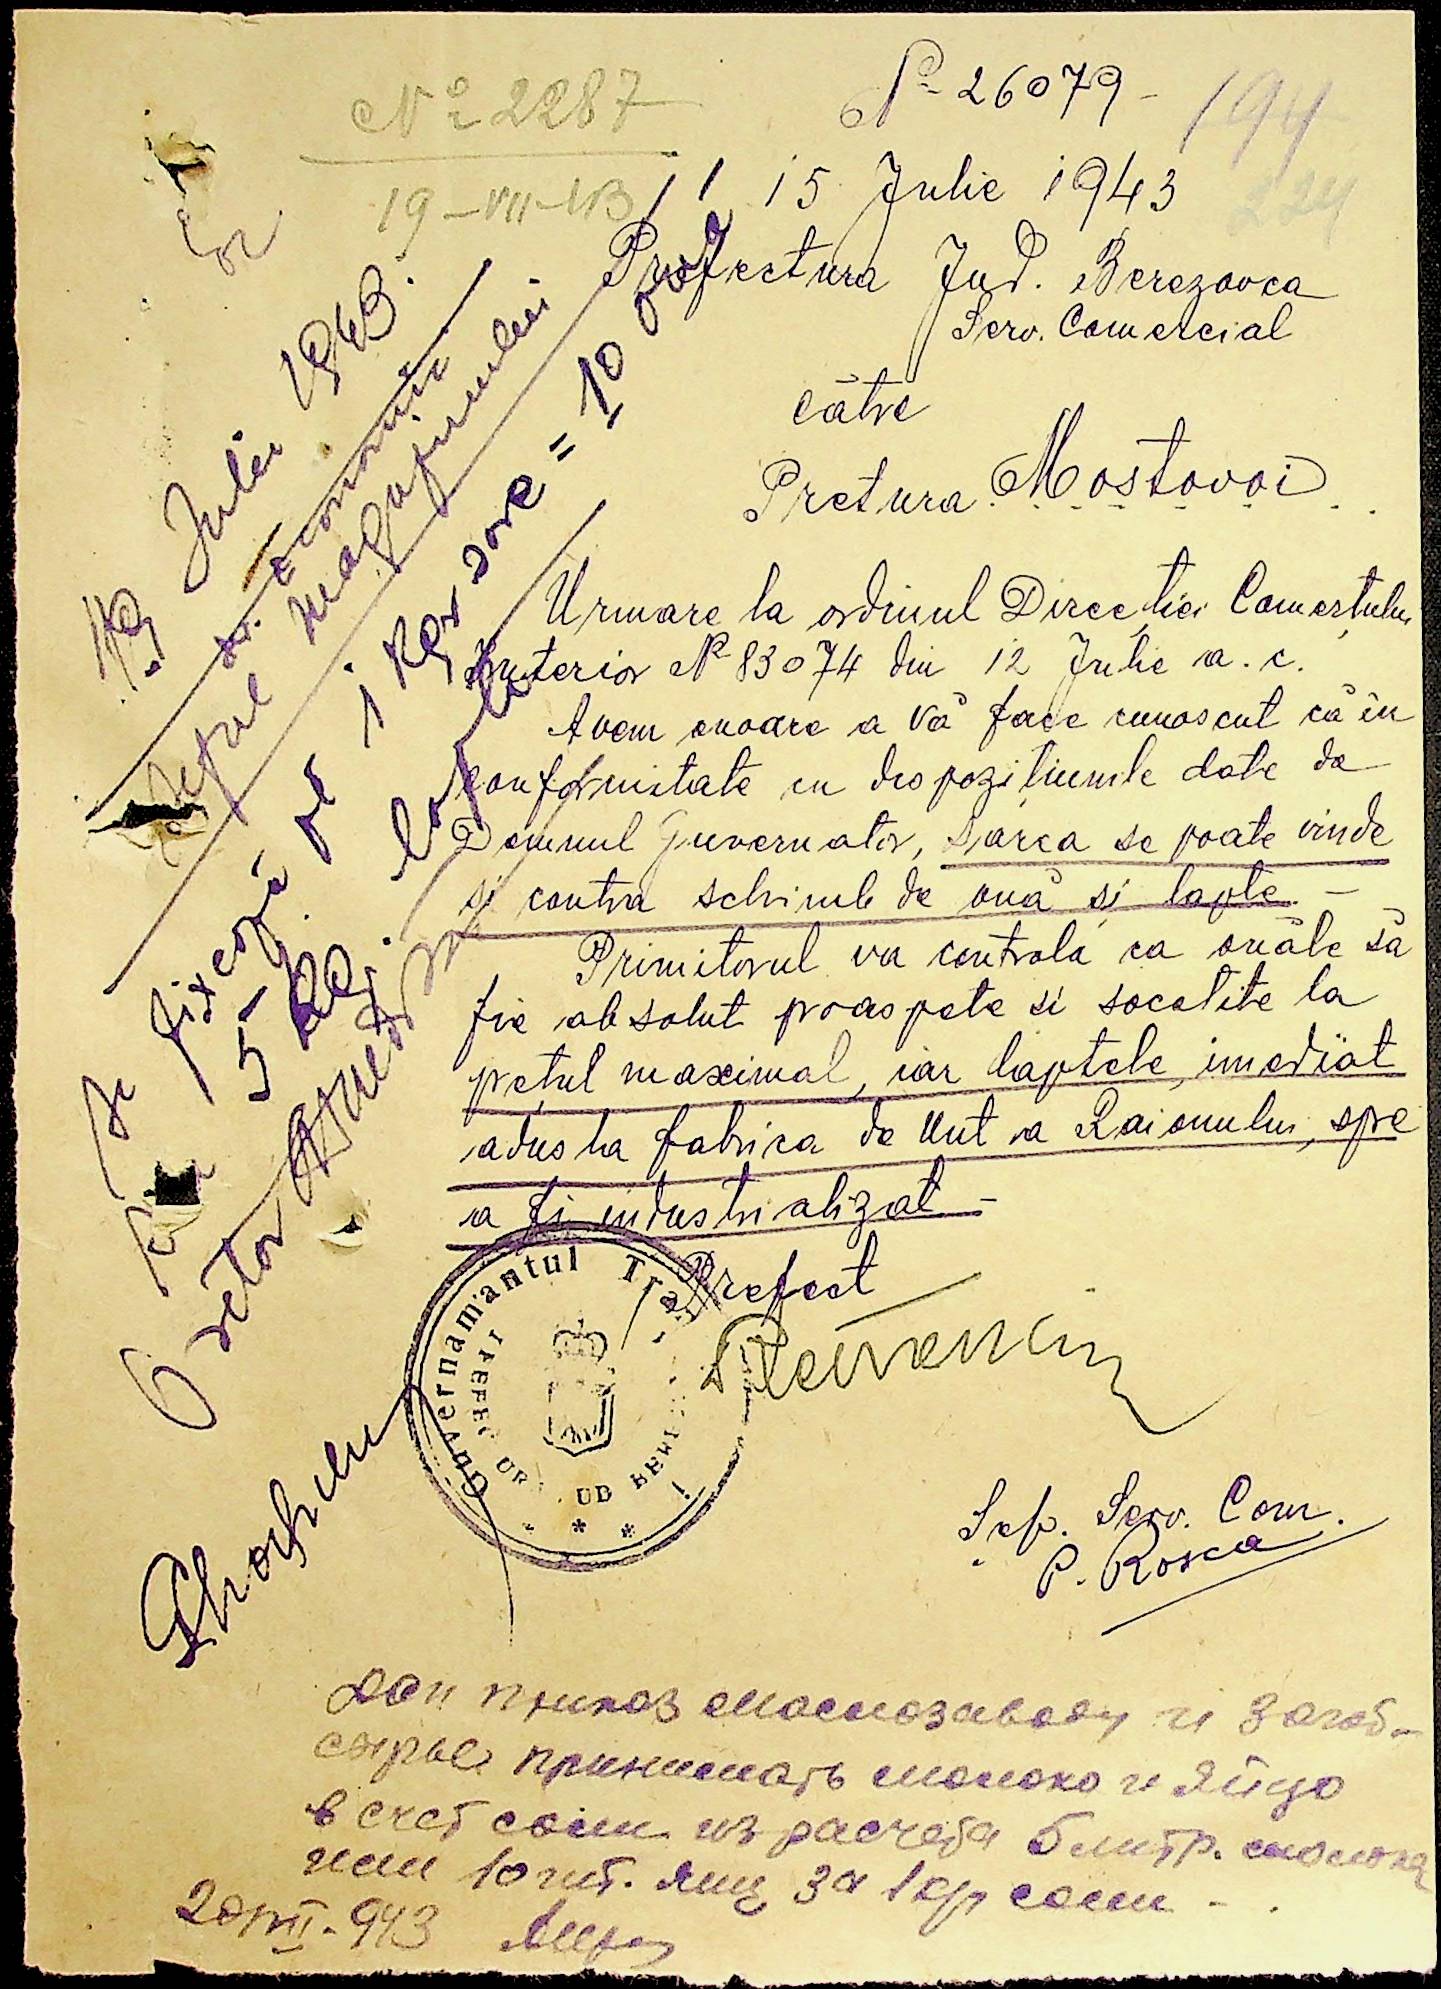 № 2287
19-VII-43
№ 26079-
194
224
15 Julie 1943
Prefectura Jud. Berezovca
Serv. Comercial
către
Pretura Mostovoi
Urmare la ordinul Direcției Comerțului
Interior № 83074 din 12 Julie a.c.
Avem onoare a Vă face cunoscut că în
conformitate cu dispozițiunile date de
Domnul Guvernator, sarea se poate vinde
și contra schimb de ouă și lapte. —
Primitorul va controla ca ouăle să
fie absolut proaspete si socotite la
prețul maximal, iar laptele, imediat
adus la fabrica de Unt a Raionului, spre
a fi industrializat —
Prefect
Șef. Serv. Com.
P. Rosca
Guvernamântul
UD
19 Julie 1943.
economic
Șeful magazinului
Se fixează pt 1 Kgr sare = 10 ouă
5 lapte
Pretor
Дан приказ маслозаводу и загот-
сырье принимать молоко и яйцо
в счет соли из расчета 5 литр. молока
или 10 шт. яиц за 1 кгр соли -
20/VII-943